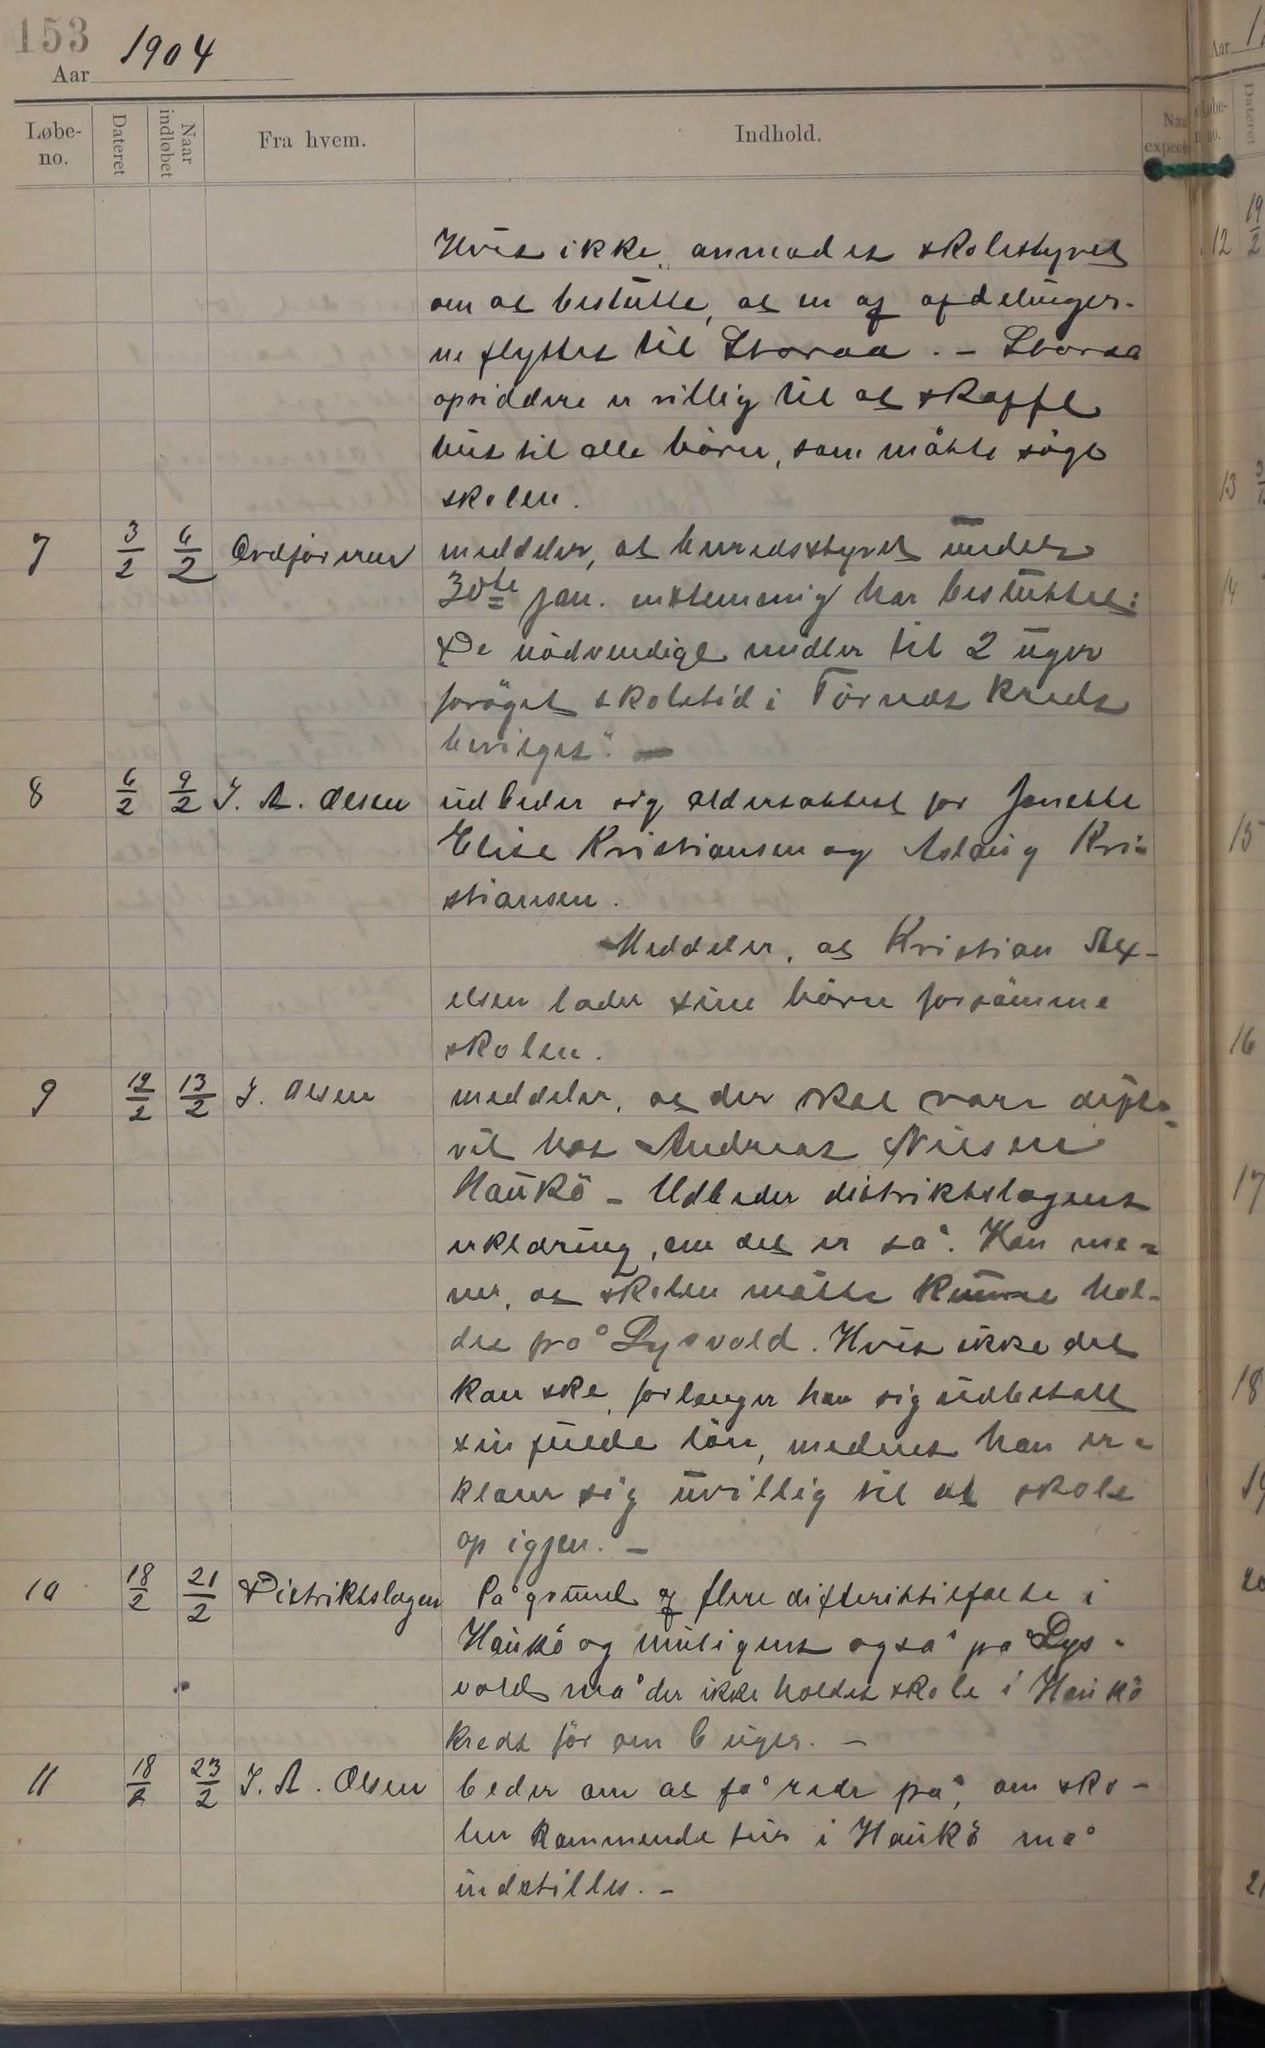 153
Aar 1904
Løbe-
no.
Dateret
Naar
indløbet
Fra hvem.
Indhold.
Hvis ikke, anmodes skolestyret
om at beslutte, at en af afdelinger-
ne flyttes til Storaa. - Storaa
opsiddere er villig til at skaffe
hus til alle börn, som måtte söge
skolen.
7 3/2 6/2 Ordföreren meddeler, at herredsstyret under
30te jan. enstemmig har besluttet:
"De nödvendige midler til 2 uger
foröget skoletid i Törnes kreds
bevilges". —
8 6/2 9/2 J. A. Olsen udbeder sig aldersattest for Janette
Elise Kristiansen og Aslaug Kri-
stiansen.
Meddeler, at Kristian Ax-
elsen lader sine börn forsömme
skolen.
9 12/2 13/2 J. Olsen meddeler, at der skal være difte-
rit hos Andreas Nilsen
Haukö - Udbeder distriktslægens
erklæring, om det er så. Han me-
ner, at skolen måtte kunne hol-
des på Dypvold. Hvis ikke det
kan ske, forlanger han sig udbetalt
sin fulde lön, medens han er-
klærer sig uvillig til at skole
op igjen. -
10 18/2 21/2 Distriktslægen På grund af flere difteritilfælde i
Haukö og muligens også på Dyp-
vold må der ikke holdes skole i Haukö
kreds för om 6 uger. -
11 18/2 23/2 J. A. Olsen beder om at få rede på, om sko-
len kommende tur i Haukö må
indstilles. -